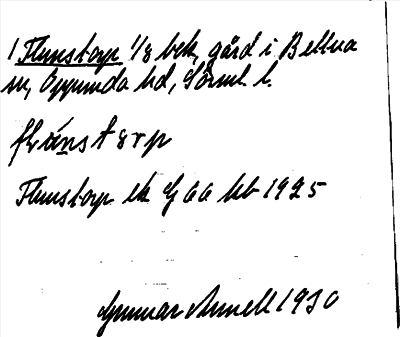 1 Flenstorp 1/8 bek, gård i Bettna
sn, Oppunda hd, Sörml. l.
flä̀nstərp
Flenstorp ek G 66 hb 1925
Gunnar Arnell 1930